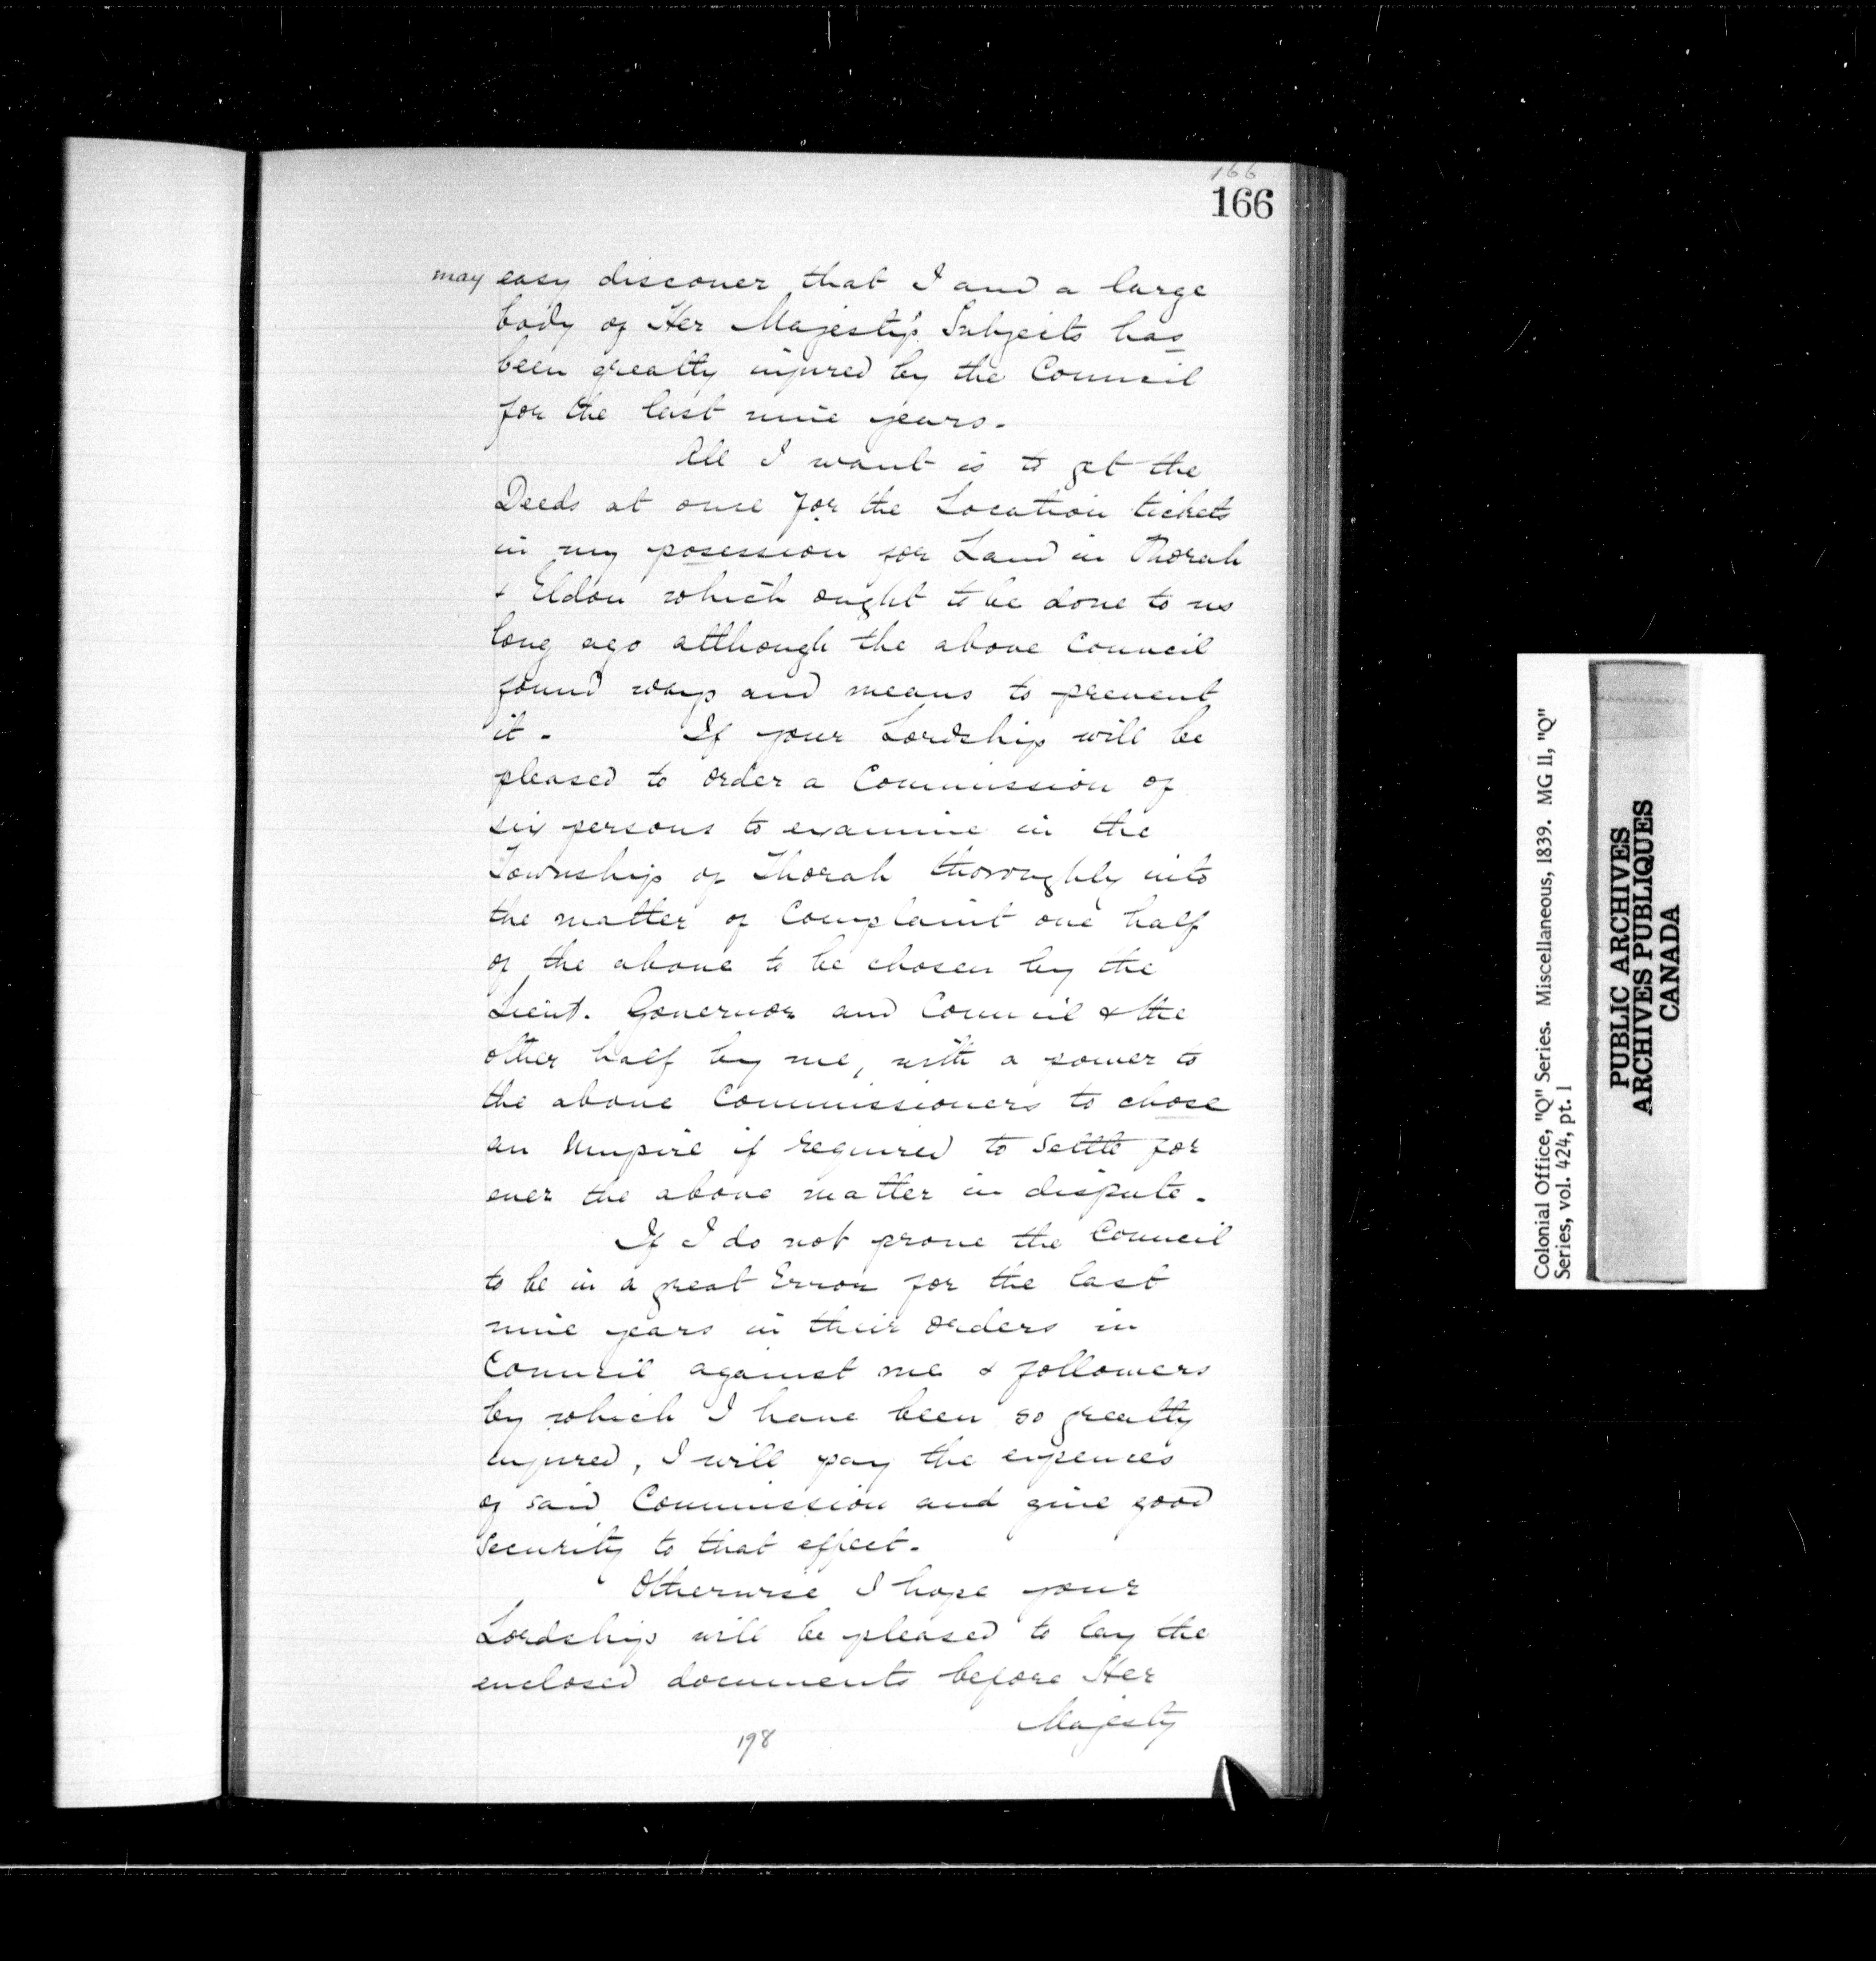 166
166
may easy discover that I and a large
body of Her Majesty's Subjects has
been greatly injured by the Council
for the last nine years.
All I want is to get the
Deeds at once for the Location tickets
in my posession for Land in Thorah
& Eldon which ought to be done to us
long ago although the above Council
found ways and means to prevent
it - If your Lordship will be
pleased to order a Commission of
six persons to examine in the
Township of Thorah thoroughly into
the matter of Complaint one half
of the above to be chosen by the
Lieut. Governor and Council & the
other half by me, with a power to
the above Commissioners to chose
an Umpire if required to Settle for
ever the above matter in dispute.
If I do not prove the Council
to be in a great Error for the last
nine years in their orders in
Council against me & followers
by which I have been so greatly
injured, I will pay the expences
of said Commission and give good
security to that effect.
Otherwise I hope your
Lordship will be pleased to lay the
enclosed documents before Her
Majesty
198
Colonial Office, "Q" Series. Miscellaneous, 1839. MG 11, "Q"
Series, vol. 424, pt. 1
PUBLIC ARCHIVES
ARCHIVES PUBLIQUES
CANADA